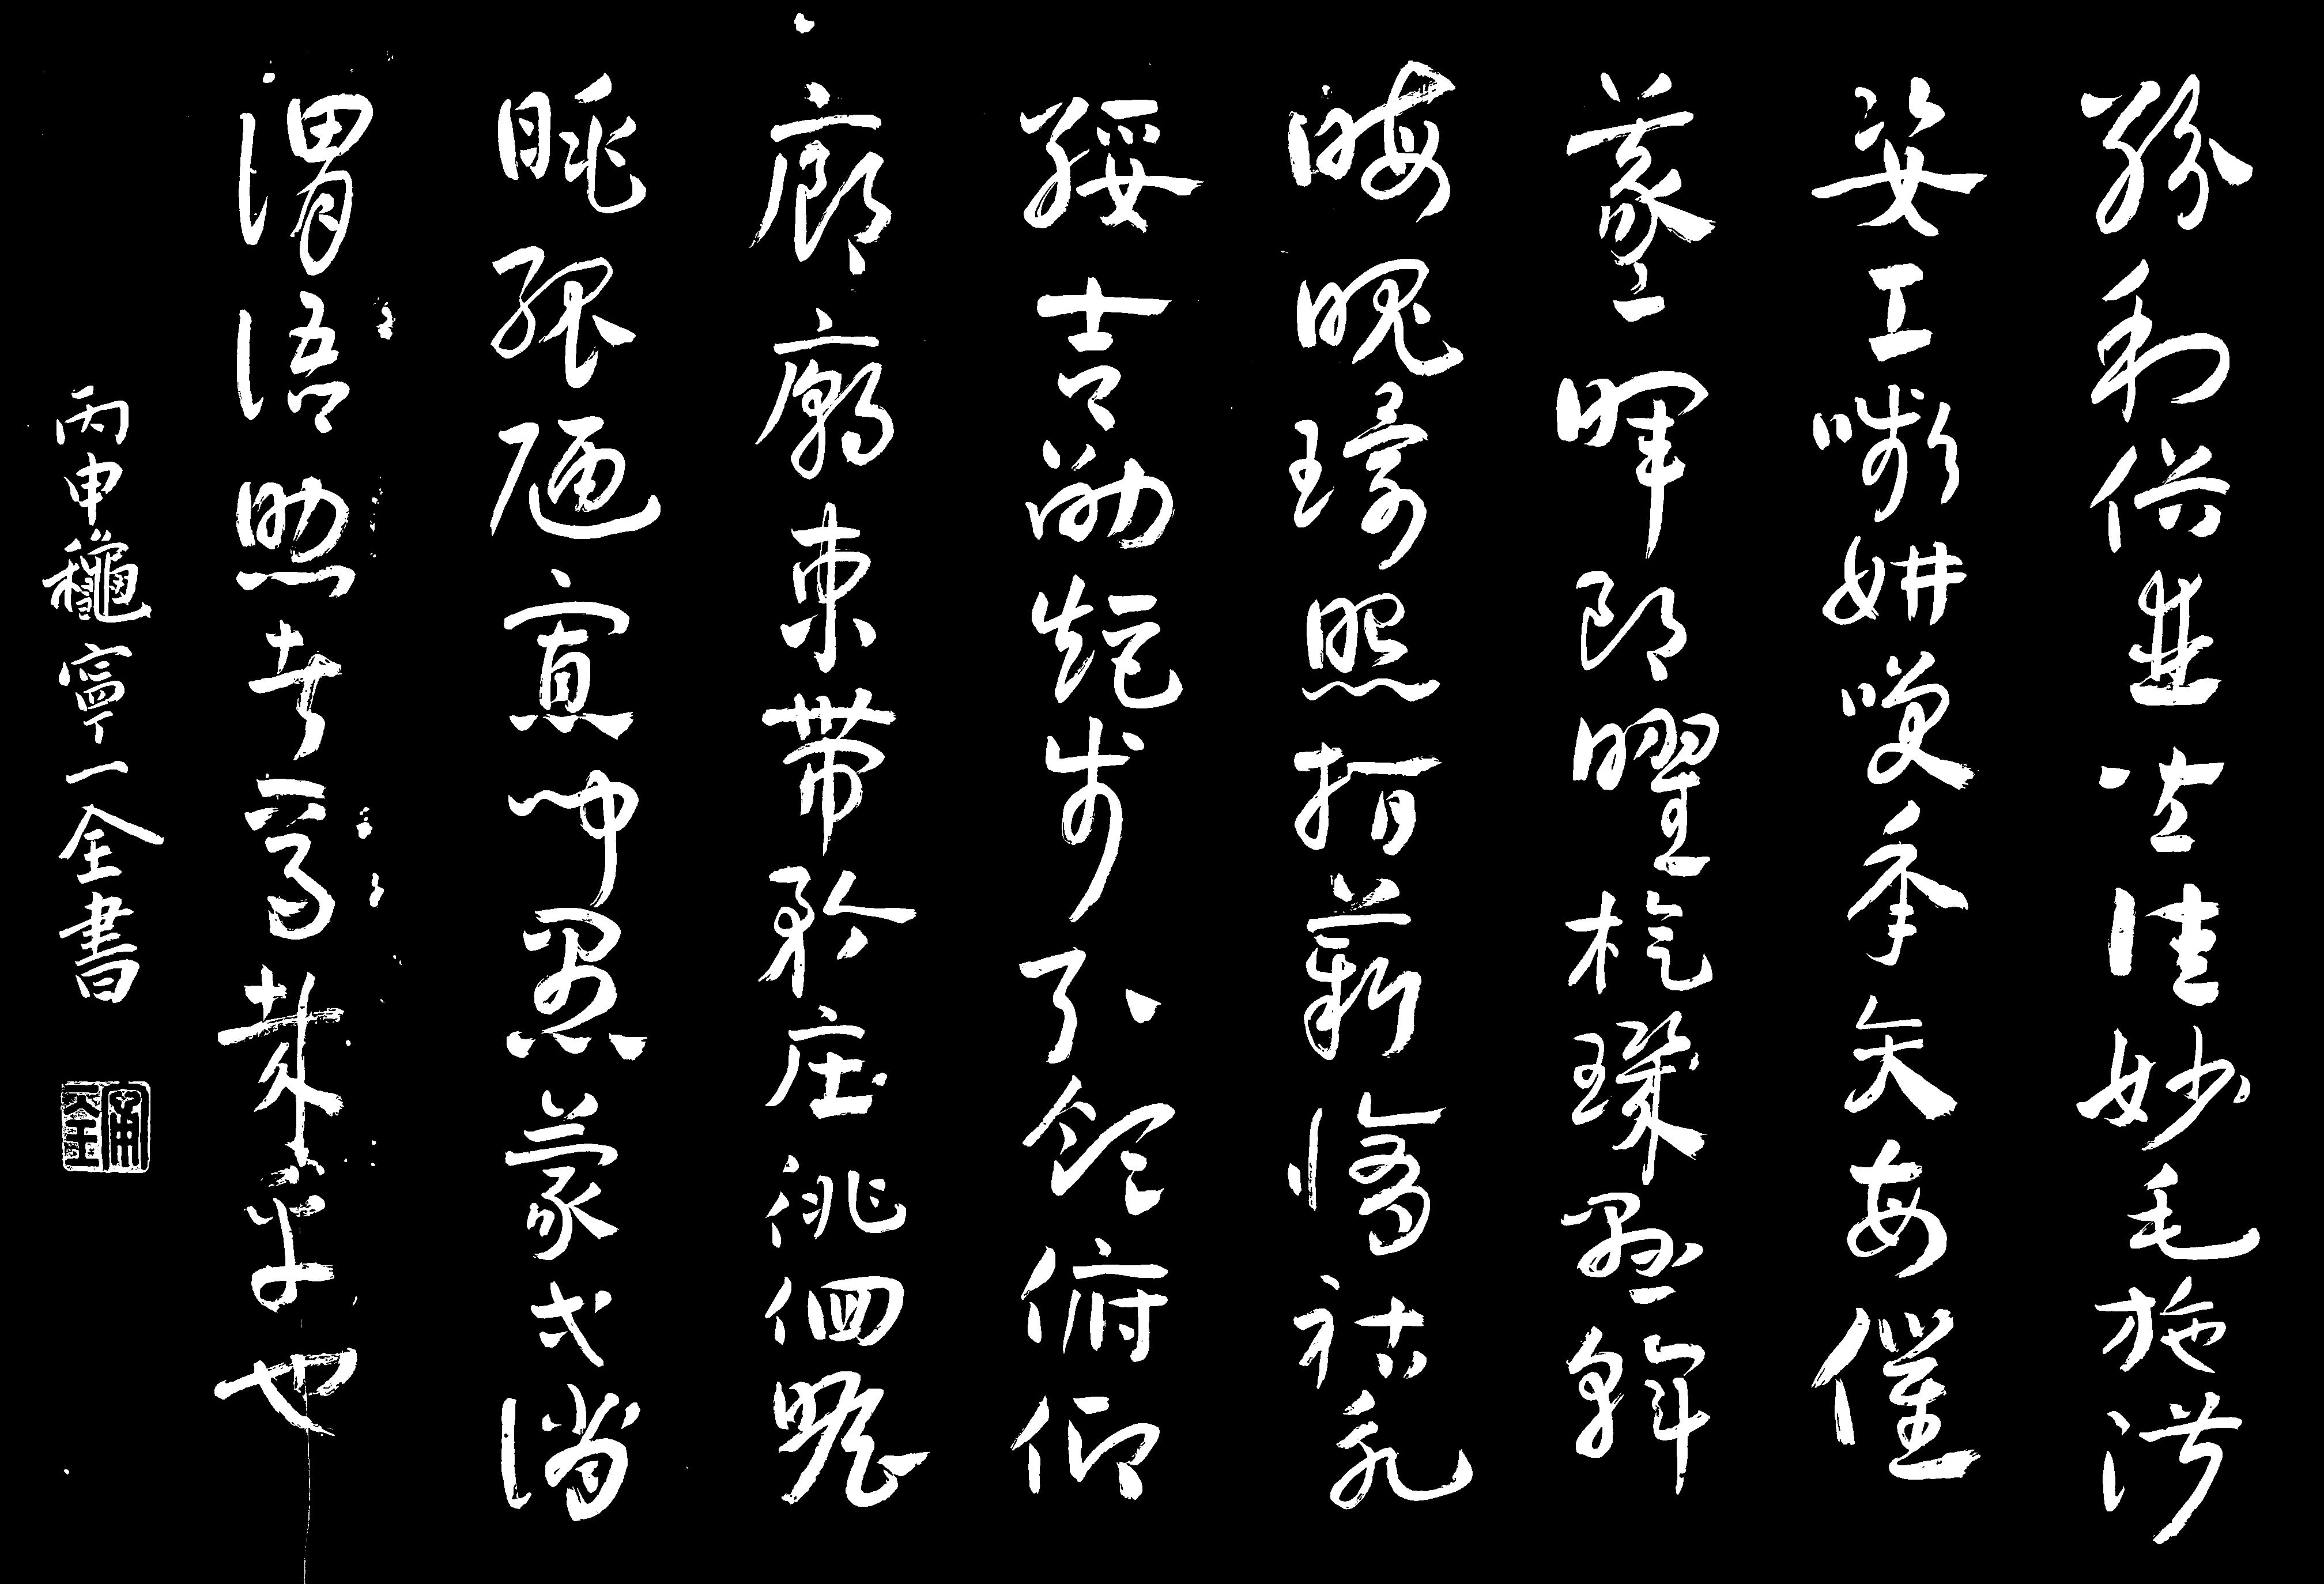 紛利俗並皆佳妙毛施淑
姿工嚬妍笑年矢每催
羲暉朗曜璇璣懸斡
晦魄環照指薪修祜永
綏吉劭矩步引領俯仰
廊廟束帶矜莊徘徊瞻
眺孤陋寡聞愚蒙等誚
謂語助者焉哉乎也
丙申穐寧一全書